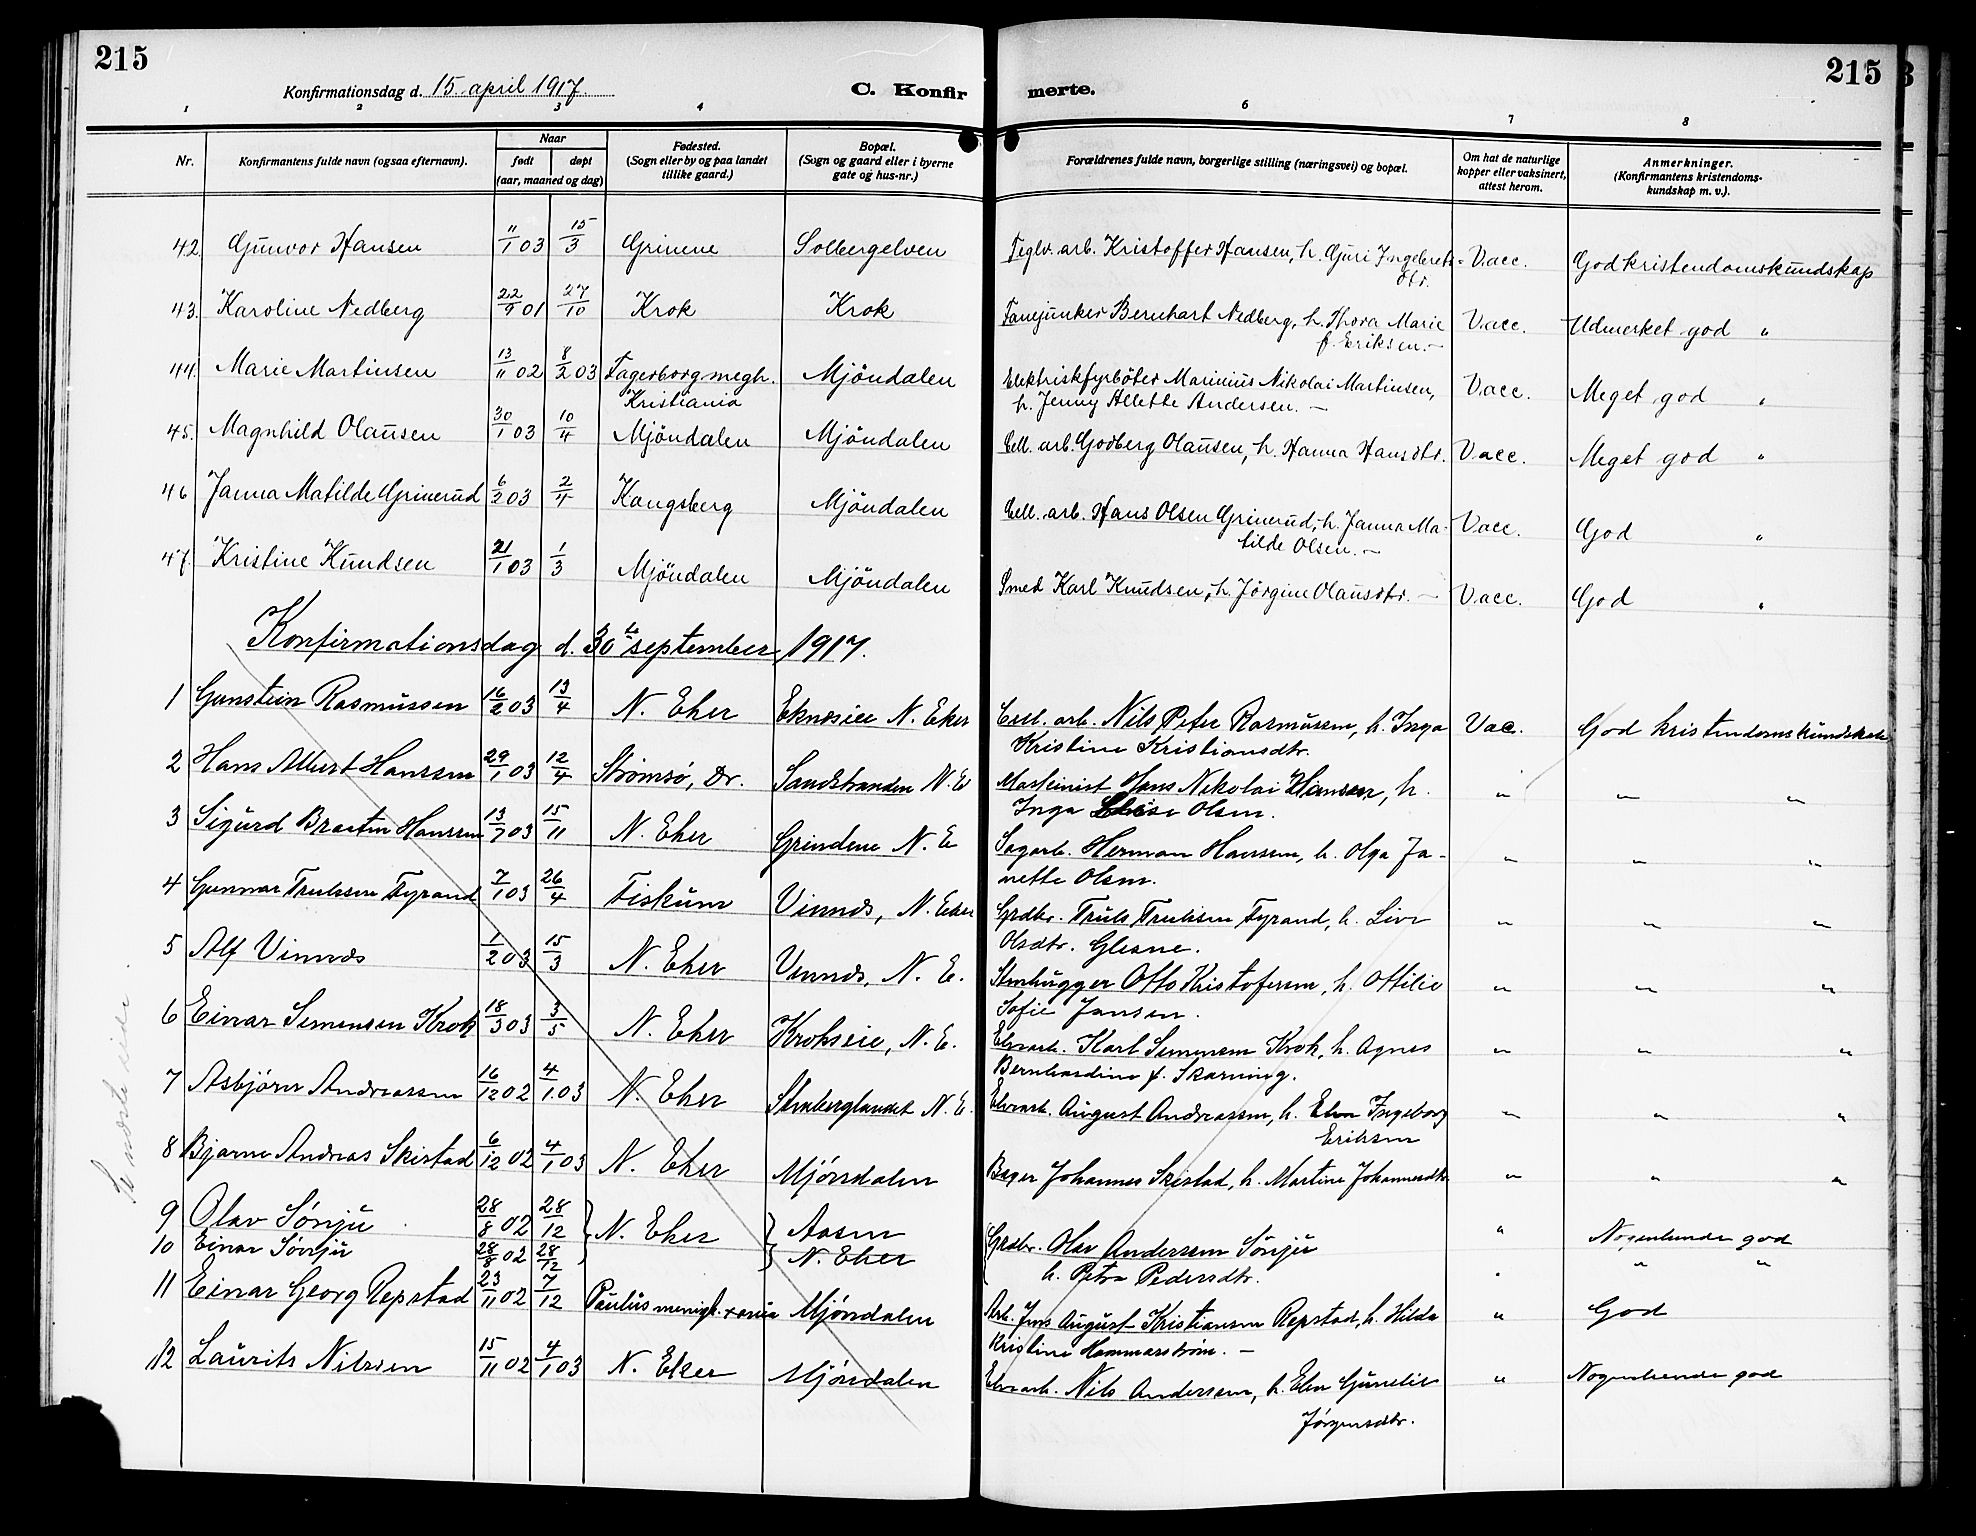 215
215
Konfirmationsdag d. 15. april 1917.
C. Konfir
merte.
1 2 3 4 6 7 8
Nr. Konfirmantens fulde navn (ogsaa efternavn). Naar født døpt (aar, maaned og dag) Fødested. (Sogn eller by og paa landet tillike gaard.) Bopæl. (Sogn og gaard eller i byerne gate og hus-nr.) Forældrenes fulde navn, borgerlige stilling (næringsvei) og bopæl. Om hat de naturlige kopper eller vaksinert, attest herom. Anmerkninger. (Konfirmantens kristendoms-kundskap m. v.).
42. Gunvor Hansen 11/1 03 15/3 Grinene Solbergelven Teglv. arb. Kristoffer Hansen, h. Guri Ingebrets- Vacc. God kristendomskundskap
dtr.
43. Karoline Nedberg 22/9 01 27/10 Krok Krok Fanejunker Bernhart Nedberg, h. Thora Marie Vacc. Udmerket god "
f. Eriksen.-
44. Marie Martinsen 13/11 02 8/2 03 Fagerborg megh. Mjöndalen Elektriskfyrböter Marinius Nikolai Martinsen, Vacc. Meget god "
Kristiania h. Jenny Allette Andersen. -
45. Magnhild Olausen 30/1 03 10/4 Mjöndalen Mjöndalen Cell. arb. Godberg Olausen, h. Hanna Hansdtr. Vacc. Meget god "
46 Janna Matilde Grinerud 6/2 03 2/4 Kongsberg Mjöndalen Cell. arb. Hans Olsen Grinerud, h. Janna Ma- Vacc. God "
tilde Olsen. -
47. Kristine Knudsen 21/1 03 1/3 Mjöndalen Mjöndalen Smed Karl Knudsen, h. Jörgine Olausdtr. - Vacc. God "
Konfirmationsdag d. 30te september 1917.
1 Gunstein Rasmussen 16/2 03 13/4 N. Eker Eknæseie N. Eker Cell. arb. Nils Peter Rasmussen, h. Inga Vac. God kristendomskundskab
Kristine Kristiansdtr.
2 Hans Albert Hanssen 29/1 03 12/4 Strømsø, Dr. Sandstranden N. E Maskinist Hans Nikolai Hansen, h. " " "
Inga Olsen.
3 Sigurd Braaten Hanssen 13/7 03 15/11 N. Eker Grindene N. E Sagarb. Herman Hanssen, h. Olga Ja- " " "
nette Olsen.
4 Gunnar Trulssen Fyrand 7/1 03 26/4 Fiskum Vinnæs, N. Eker Grdbr. Truls Trulssen Fyrand, h. Live " " "
Olsdtr. Glesne.
5 Alf Vinnæs 1/2 03 15/3 N. Eker Vinnæs, N. E. Stenhugger Otto Kristofersen, h. Ottilie " " "
Sofie Jansen.
6 Einar Simensen Krok 18/3 03 3/5 N. Eker Krokseie, N. E. Elvearb. Karl Simensen Krok, h. Agnes " " "
Bernhardine f. Skarning.
7 Asbjörn Andreassen 16/12 02 4/1 03 N. Eker Stenberglandet N. E. Elvearb. August Andreassen, h. Elen Ingeborg " " "
Eriksen
8 Bjarne Andreas Skistad 6/12 02 4/1 03 N. Eker Mjöndalen Bager Johannes Skistad, h. Martine Johannesdtr. " " "
9 Olav Sönju 28/8 02 28/12 N. Eker Aasen Grdbr. Olav Anderssen Sönju " Nogenlunde god
10 Einar Sönju 28/8 02 28/12 N. Eker h. Petra Pedersdtr. " " "
11 Einar Georg Repstad 23/11 02 7/12 Paulus menigh. Mjöndalen Arb. Jens August Kristiansen Repstad, h. Hilda " God
Kristine Hammarström. -
12 Laurits Nilssen 15/11 02 4/1 03 N. Eker Mjöndalen Elvearb. Nils Anderssen, h. Elen Gunelie " Nogenlunde god
Jörgensdtr.
Se næste side.